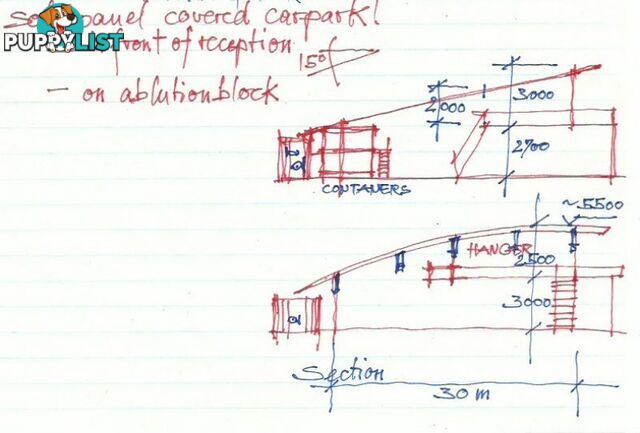 panel covered carpark!
PUPPYLIST
front of reception
15°
- on ablution block
2,000
3000
2700
CONTANERS
~5500
HANGER
2500
3000
Section
30 m